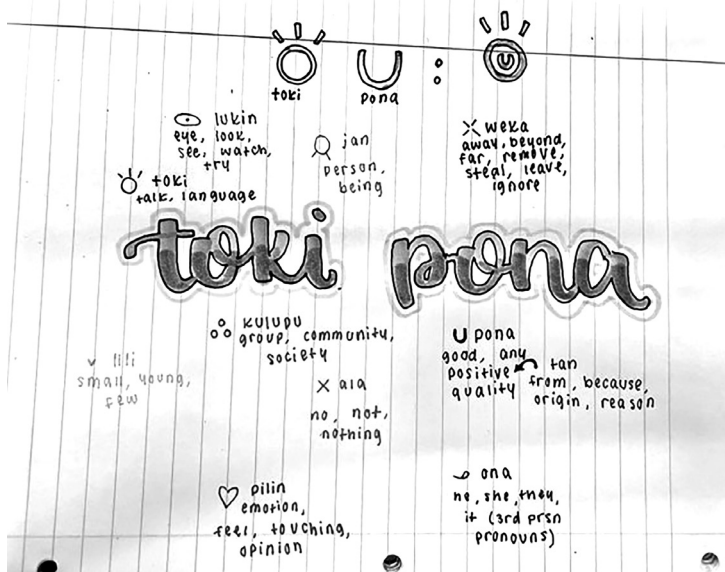 toki pona :
lukin
eye, look,
see, watch,
try
jan
person,
being
weka
away, beyond,
far, remove,
steal, leave,
ignore
toki
talk, language
toki pona
kulupu
group, community,
society
lili
small, young,
few
ala
no, not,
nothing
pona
good, any
positive
quality
tan
from, because,
origin, reason
pilin
emotion,
feel, touching,
opinion
ona
he, she, they,
it (3rd prsn
pronouns)